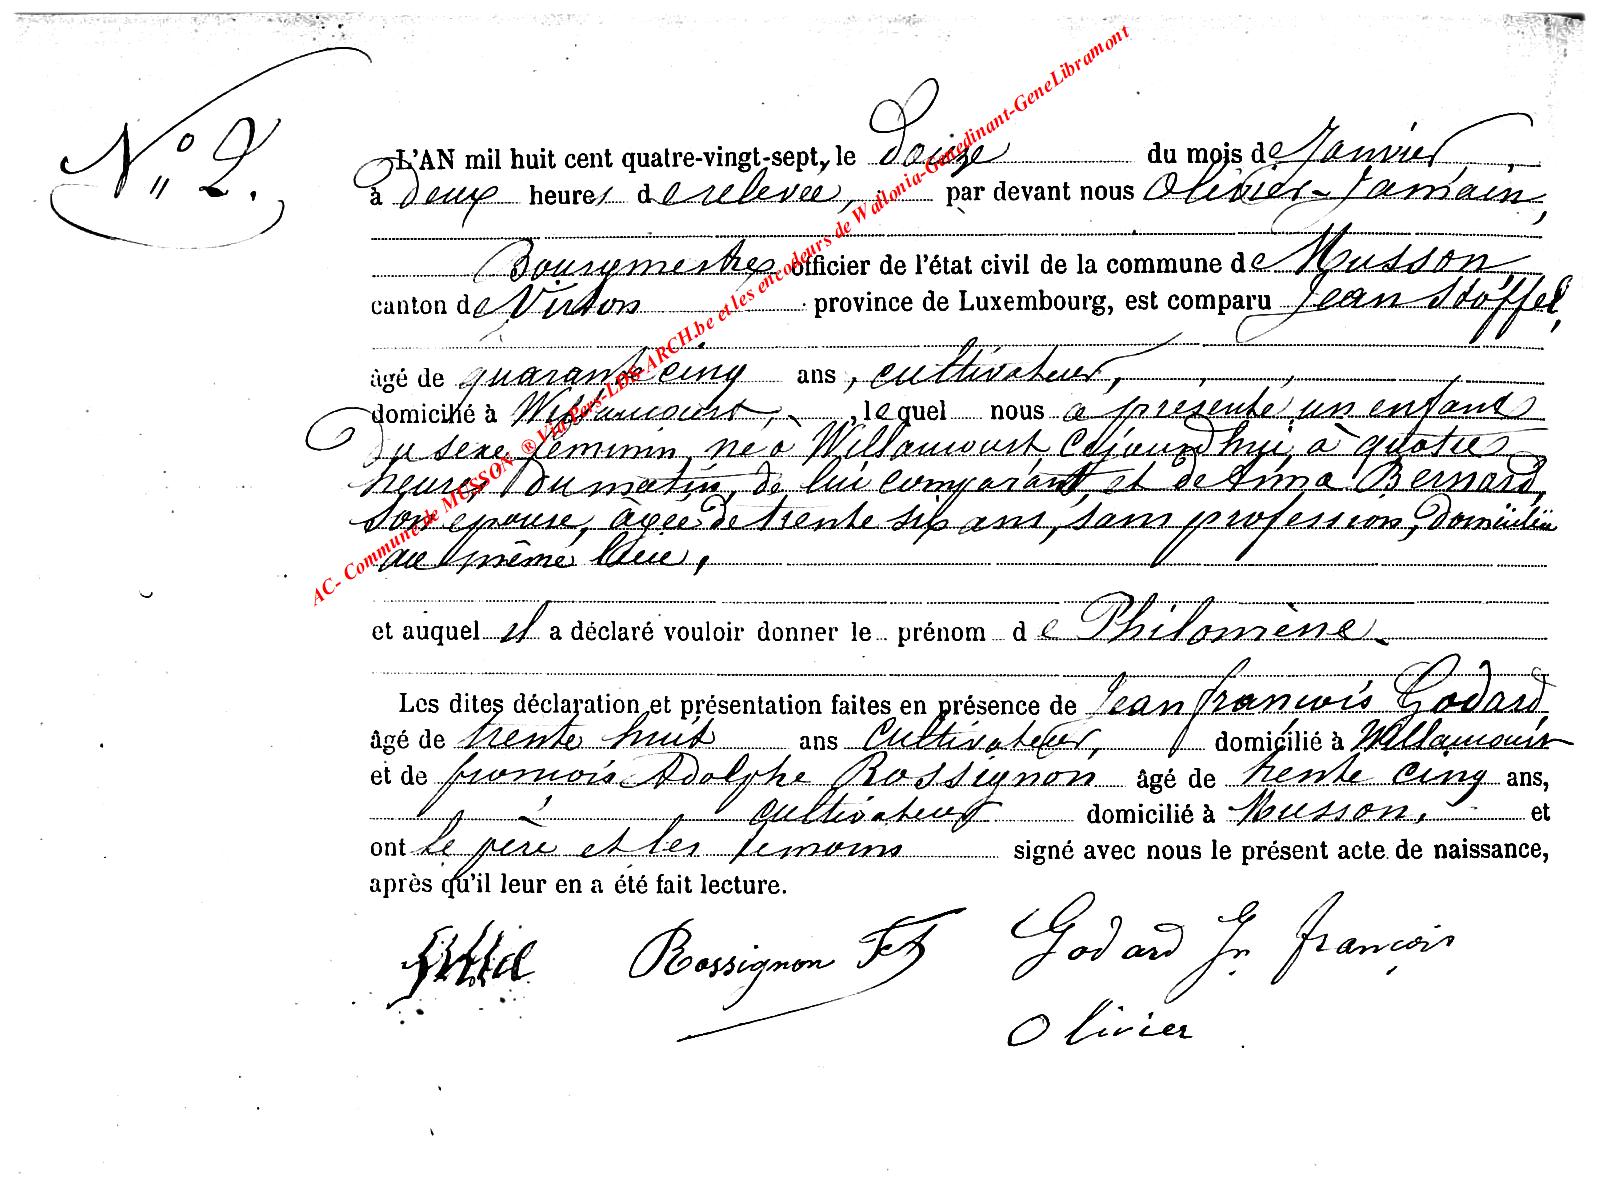 N° 2.
L'AN mil huit cent quatre-vingt-sept, le douze du mois de Janvier,
à deux heures de relevée, par devant nous Olivier-Jamain,
Bourgmestre officier de l'état civil de la commune de Musson,
canton de Virton province de Luxembourg, est comparu Jean Stoffel,
âgé de quarante cinq ans, cultivateur,
domicilié à Willancourt, lequel nous a présenté un enfant
du sexe féminin, né à Willancourt, cejourd'hui, à quatre
heures du matin, de lui comparant et de Anna Bernard,
son épouse, âgée de trente six ans, sans profession, domiciliée
au même lieu,
et auquel il a déclaré vouloir donner le prénom de Philomène.
Les dites déclaration et présentation faites en présence de Jean françois Godard
âgé de trente huit ans cultivateur, domicilié à Willancourt
et de françois Adolphe Rossignon âgé de trente cinq ans,
cultivateur domicilié à Musson, et
ont le père et les témoins signé avec nous le présent acte de naissance,
après qu'il leur en a été fait lecture.
Rossignon Godard Jn françois
Olivier
AC- Commune de MUSSON ® Via Pers-LDS-ARCH.be et les encodeurs de Wallonia-Genedinant-GeneLibramont